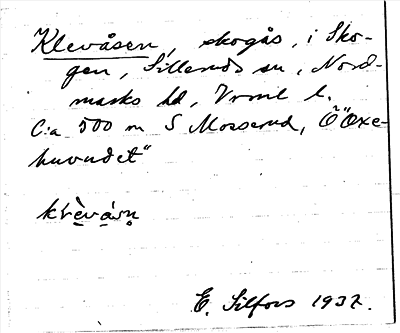 Klevåsen, skogås, i Sko-
gen, Silleruds sn, Nord-
marks hd, Vrml l.
C:a 500 m S Mosserud, Ö "Oxe-
huvudet"
klèvá̀sn̥
E. Silfors 1937.